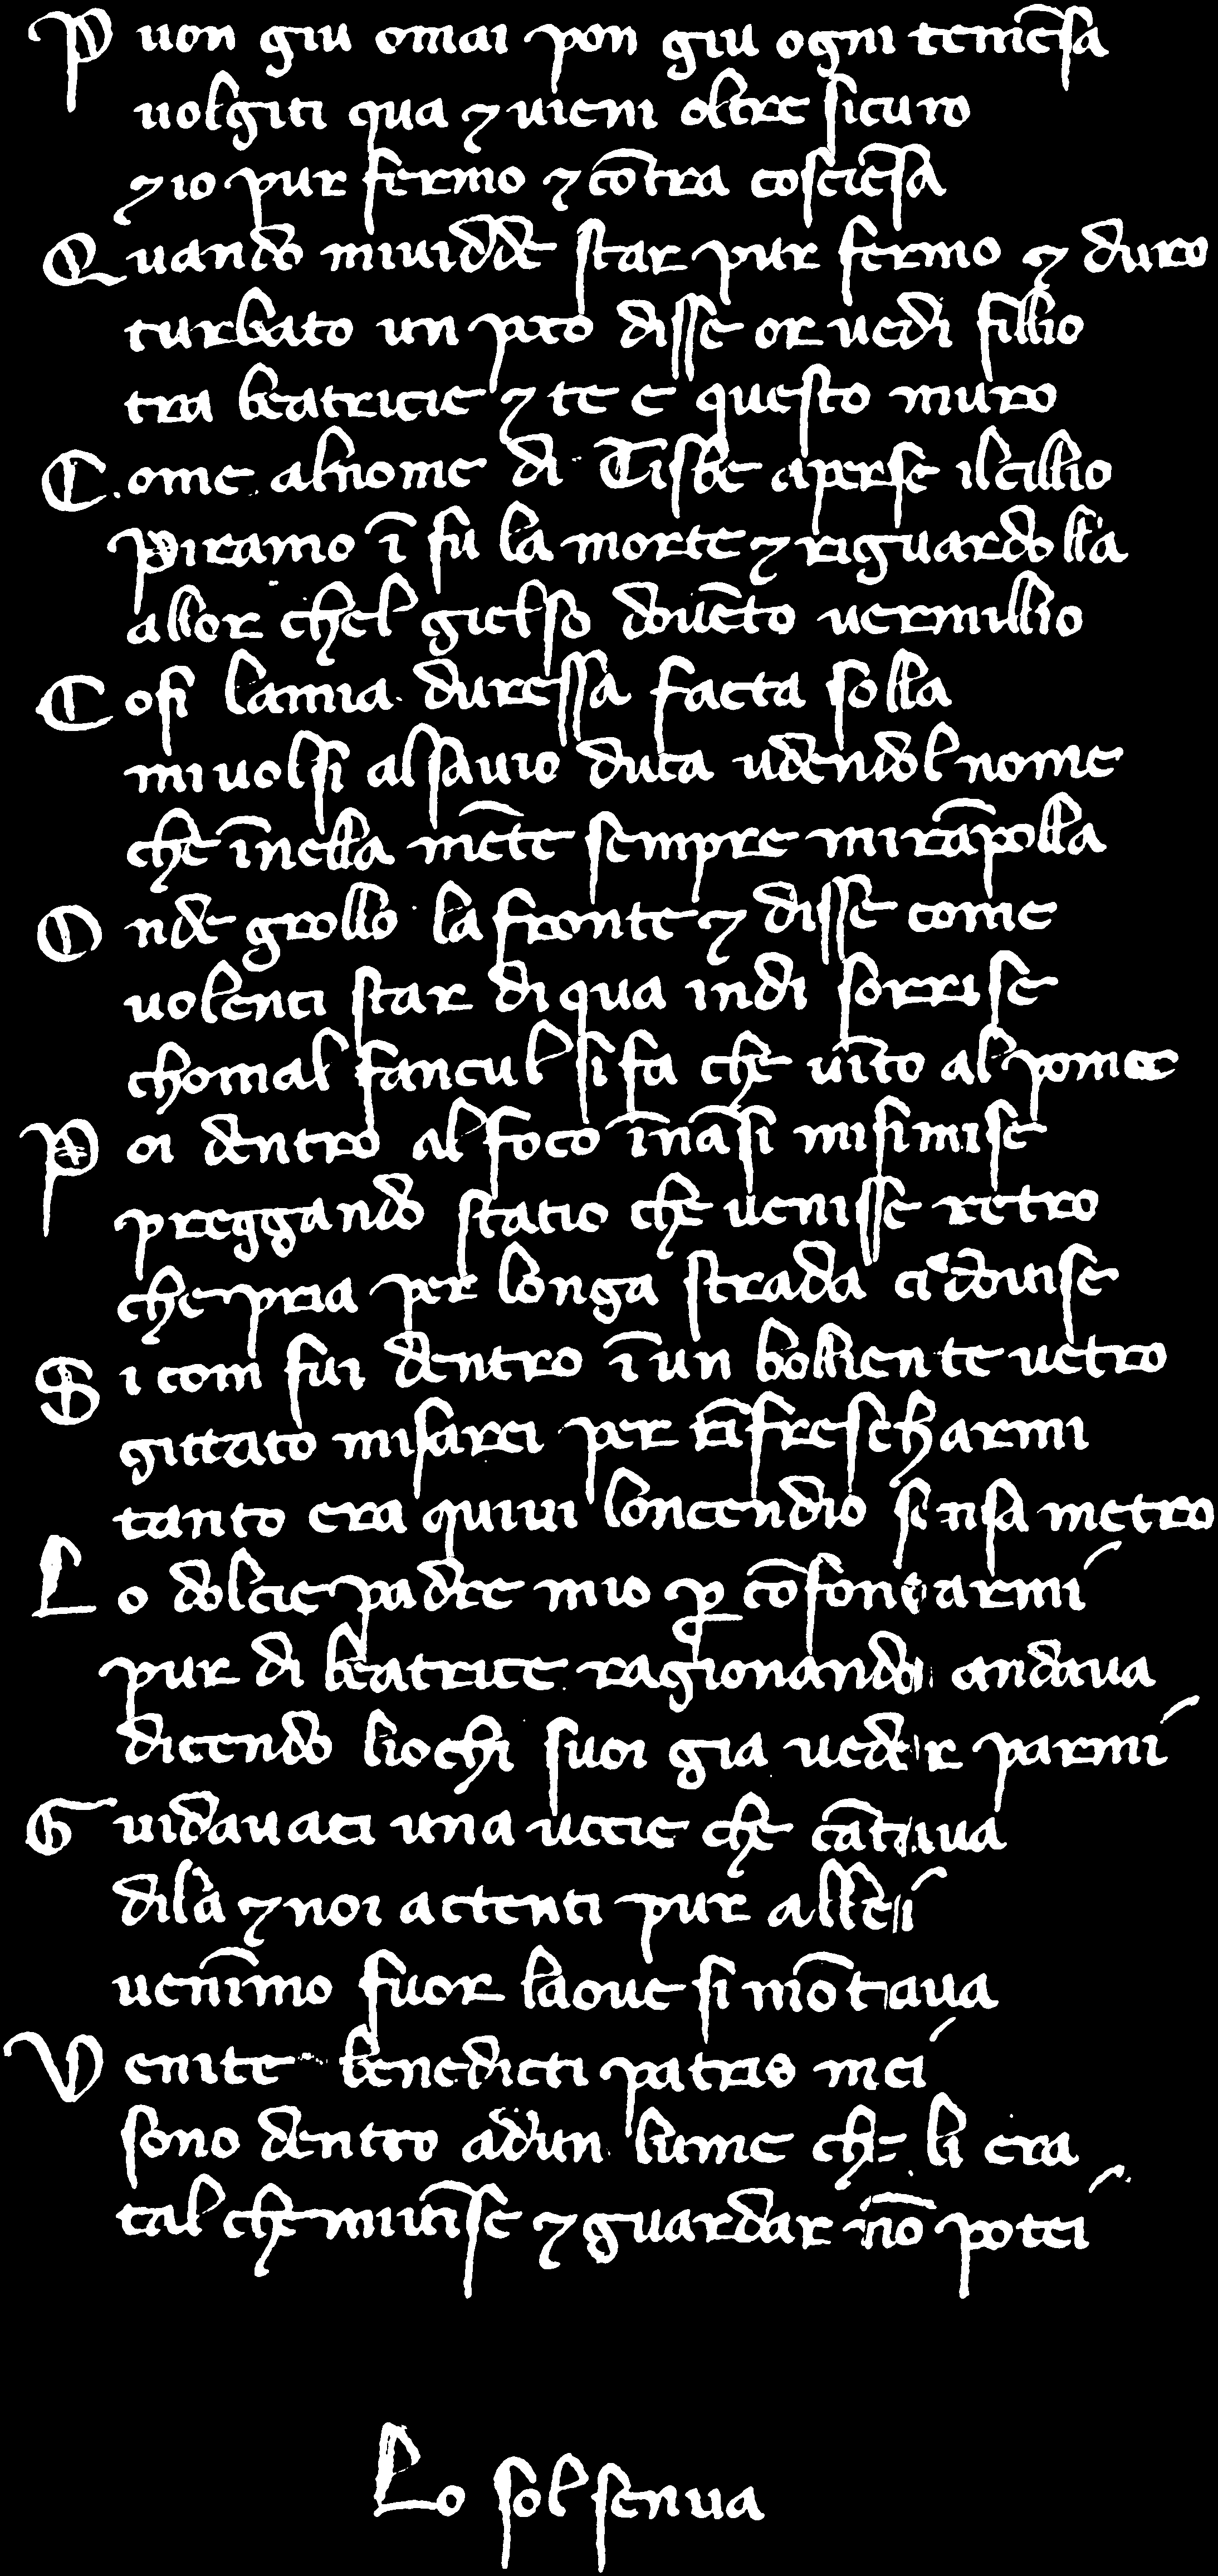 Puon giu omai pon giu ogni tem̄ēsa
uolgiti qua ⁊ uieni oltre sicuro
⁊ io pur fermo ⁊ cōtra cosciēsa
Quando miuidde star pur fermo ⁊ duro
turbato un poco disse or uedi fillio
tra beatricie ⁊ te e questo muro
Come alnome di Tisbe aperse ilcillio
Piramo ī su la morte ⁊ riguardolla
allor chel gielso douēto uermillio
Cosi lamia duressa facta solla
miuolsi alsauio duca udendol nome
che īnella mēte sempre mirāpolla
Onde grollo la fronte ⁊ disse come
uolenci star di qua indi sorrise
chomal fanciul si fa che uīto al pome
Poi dentro al foco īnāsi misimise
preggando statio che uenisse retro
che pria per longa strada ci diuise
Si com fui dentro ī un bolliente uetro
gittato misarei per rīfrescharmi
tanto era quiui loncendio sensa metro
Lo dolcie padre mio ꝑ cōfortarmi
pur di beatrice ragionando andaua
dicendo liochi suoi gia ueder parmi
Guidauaci una uocie che cātaua
dila ⁊ noi actenti pur allei
uenīmo fuor laoue si mōtaua
Venite benedicti patris mei
sono dentro adun lume che li era
tal che miuīse ⁊ guardar nō potei
Lo sol senua